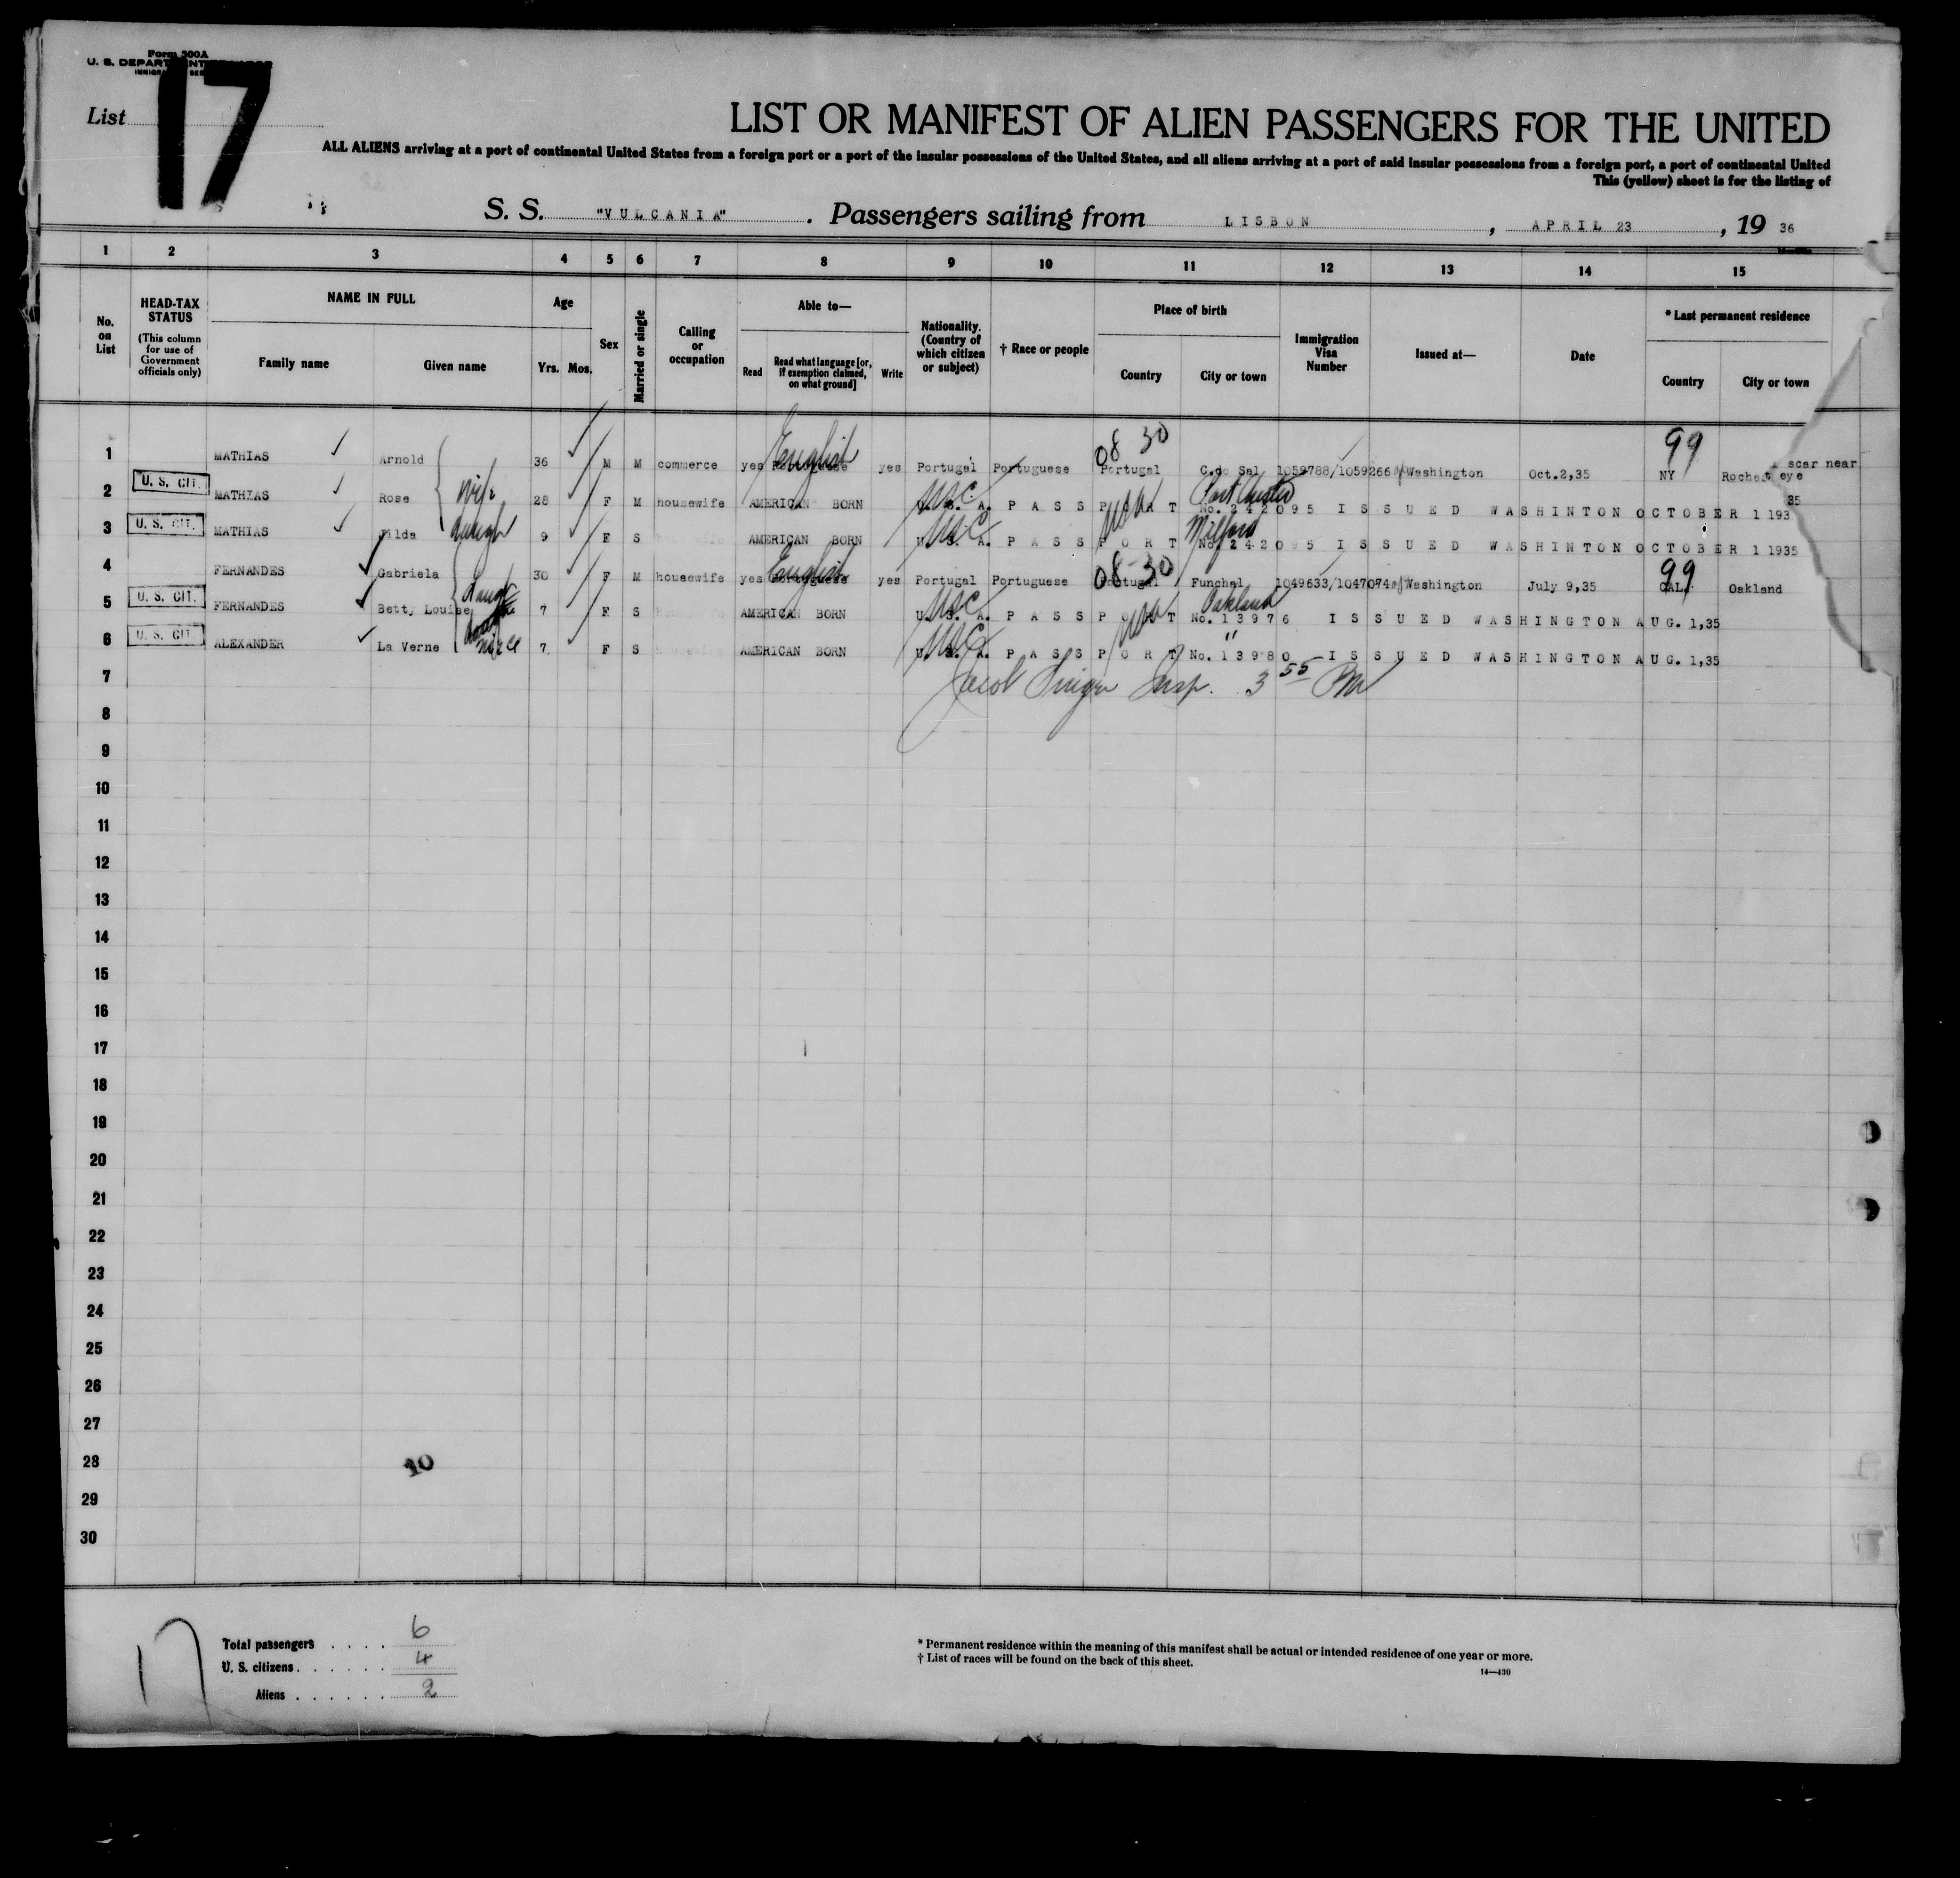 Form 500A
U. S. DEPARTMENT
List 17
LIST OR MANIFEST OF ALIEN PASSENGERS FOR THE UNITED
ALL ALIENS arriving at a port of continental United States from a foreign port or a port of the insular possessions of the United States, and all aliens arriving at a port of said insular possessions from a foreign port, a port of continental United
This (yellow) sheet is for the listing of
S. S. "VULCANIA". Passengers sailing from LISBON, APRIL 23, 1936
1 2 3 4 5 6 7 8 9 10 11 12 13 14 15
No. on List
HEAD-TAX STATUS (This column for use of Government officials only)
NAME IN FULL
Family name Given name
Age
Yrs. Mos.
Sex
Married or single
Calling or occupation
Able to—
Read Read what language [or, if exemption claimed, on what ground] Write
Nationality. (Country of which citizen or subject)
† Race or people
Place of birth
Country City or town
Immigration Visa Number
Issued at—
Date
* Last permanent residence
Country City or town
1 MATHIAS Arnold 36 M M commerce yes English yes Portugal Portuguese 08 30 Portugal C.do Sal 1059788/1059266 Washington Oct.2,35 99 NY Rochest scar near eye
2 U. S. CIT. MATHIAS Rose wife 28 F M housewife AMERICAN BORN USC U.S.A. PASSPORT Port Chester No. 242095 ISSUED WASHINTON OCTOBER 1 193 35
3 U. S. CIT. MATHIAS ilda daugh 9 F S AMERICAN BORN USC U.S.A. PASSPORT Milford No. 242095 ISSUED WASHINTON OCTOBER 1 1935
4 FERNANDES Gabriela 30 F M housewife yes English yes Portugal Portuguese 08-30 Portugal Funchal 1049633/1047074 Washington July 9,35 99 CAL. Oakland
5 U. S. CIT. FERNANDES Betty Louise daugh 7 F S AMERICAN BORN USC U.S.A. PASSPORT Oakland No. 13976 ISSUED WASHINGTON AUG. 1,35
6 U. S. CIT. ALEXANDER La Verne niece 7 F S AMERICAN BORN USC U.S.A. PASSPORT " No. 13980 ISSUED WASHINGTON AUG. 1,35
7 Jacob Singer Insp. 3 55 PM
8
9
10
11
12
13
14
15
16
17
18
19
20
21
22
23
24
25
26
27
28 10
29
30
17
Total passengers . . . . 6
U. S. citizens . . . . . . 4
Aliens . . . . . . 2
* Permanent residence within the meaning of this manifest shall be actual or intended residence of one year or more.
† List of races will be found on the back of this sheet.
14—430